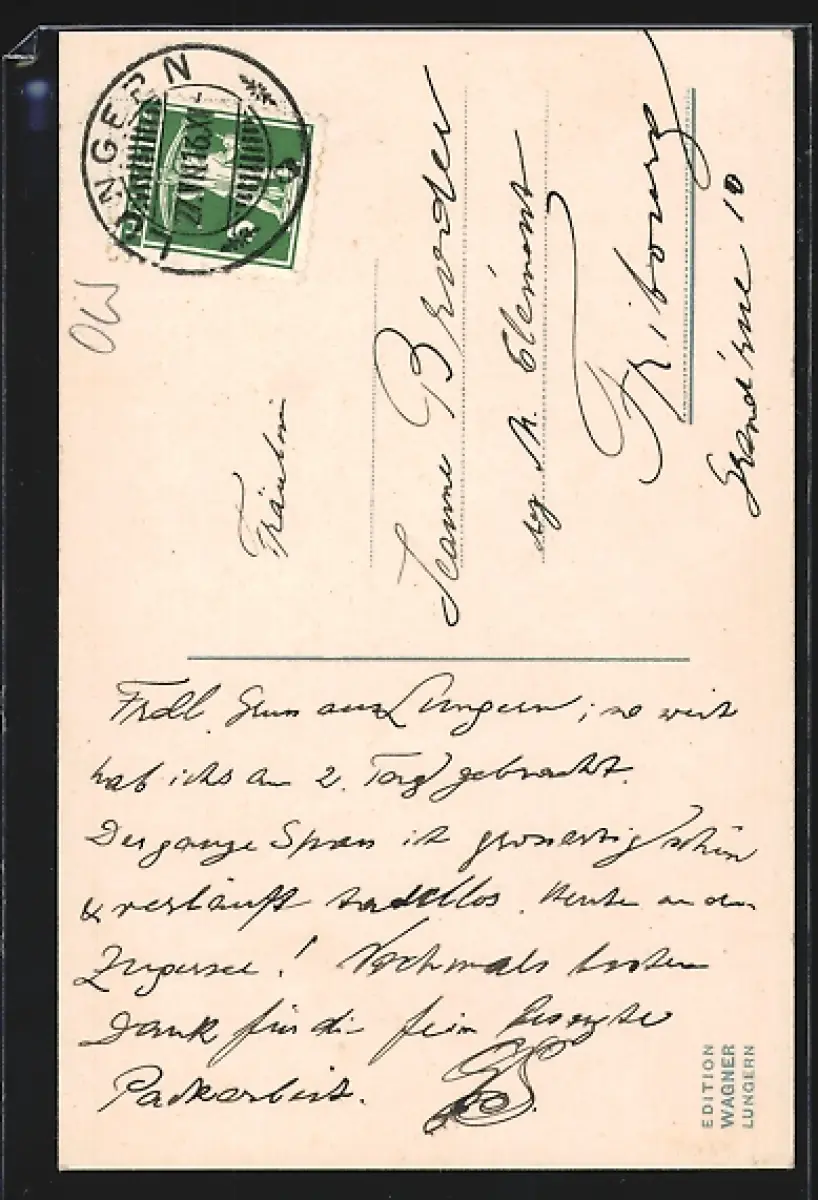 LUNGERN
OW
Fräulein
Jeanne Broder
Clément
Fribourg
Grand'rue 10
Frdl. Gruss aus Lungern; so weit
hab ichs am 2. Tag gebracht.
Der ganze Spass ist grossartig schön
& verläuft tadellos. Heute an den
Zugersee! Nochmals besten
Dank für die fein besorgte
Packarbeit.
EDITION
WAGNER
LUNGERN